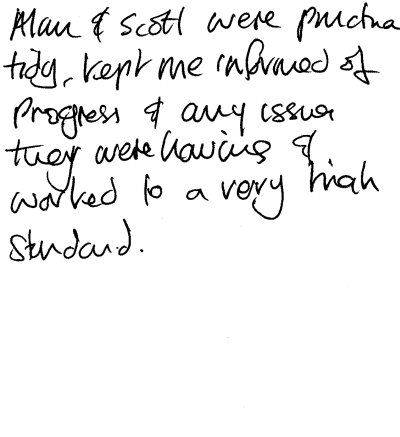 Alan & Scott were punctua
tidy, kept me informed of
progress & any issue
they were having &
worked to a very high
standard.